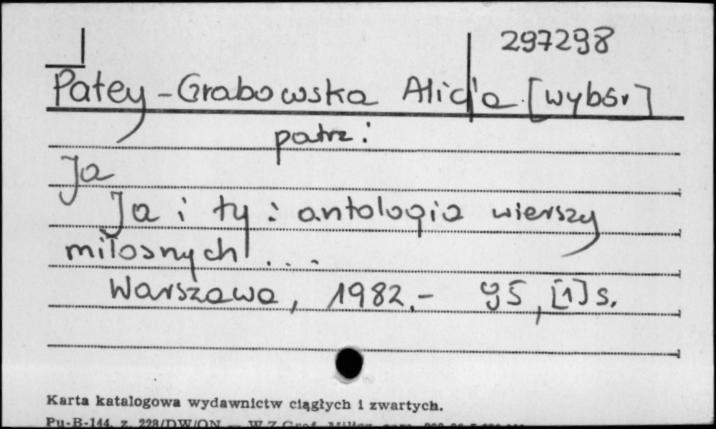 297298
Patey-Grabowska Alicja [wybór]
patrz:
Ja
Ja i ty : antologia wierszy
miłosnych ...
Warszawa, 1982.- 95, [1] s.
Karta katalogowa wydawnictw ciągłych i zwartych.
Pu-B-144, z. 228/DW/ON — W.Z.Graf.